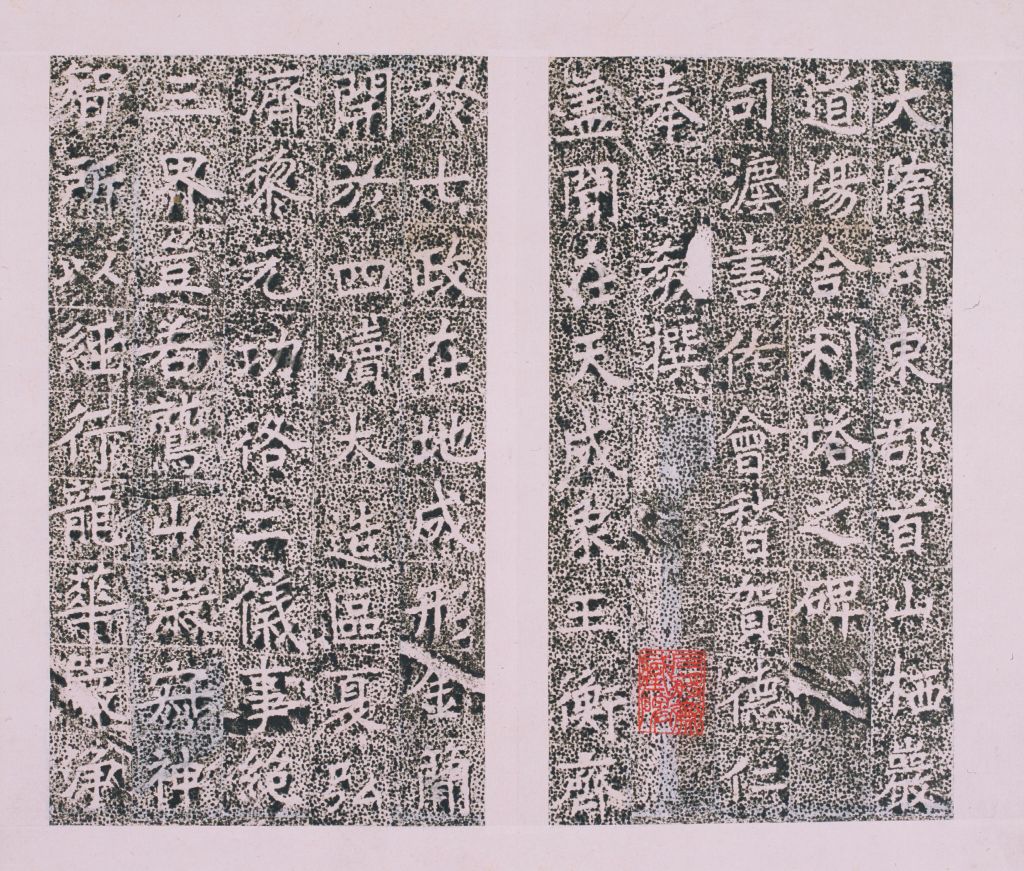 大隋河東郡首山栖巖
道塲舍利塔之碑
司灋書佐會稽賀德仁
奉敕撰
盖聞在天成象玉衡齊
於七政在地成形金簡
開於四瀆大造區夏弘
濟黎元功格二儀事絕
三界豈若鷲山神
智所以經行龍華